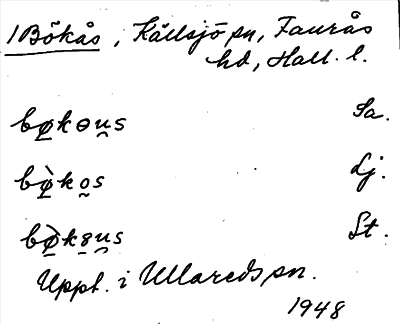 1 Bökås, Källsjö sn, Faurås
hd, Hall. l.
bø̲kɵu̲s Sa.
bø̲̀ko̲s Lj.
bø̲̀k8u̲s St.
Uppt. i Ullareds sn.
1948